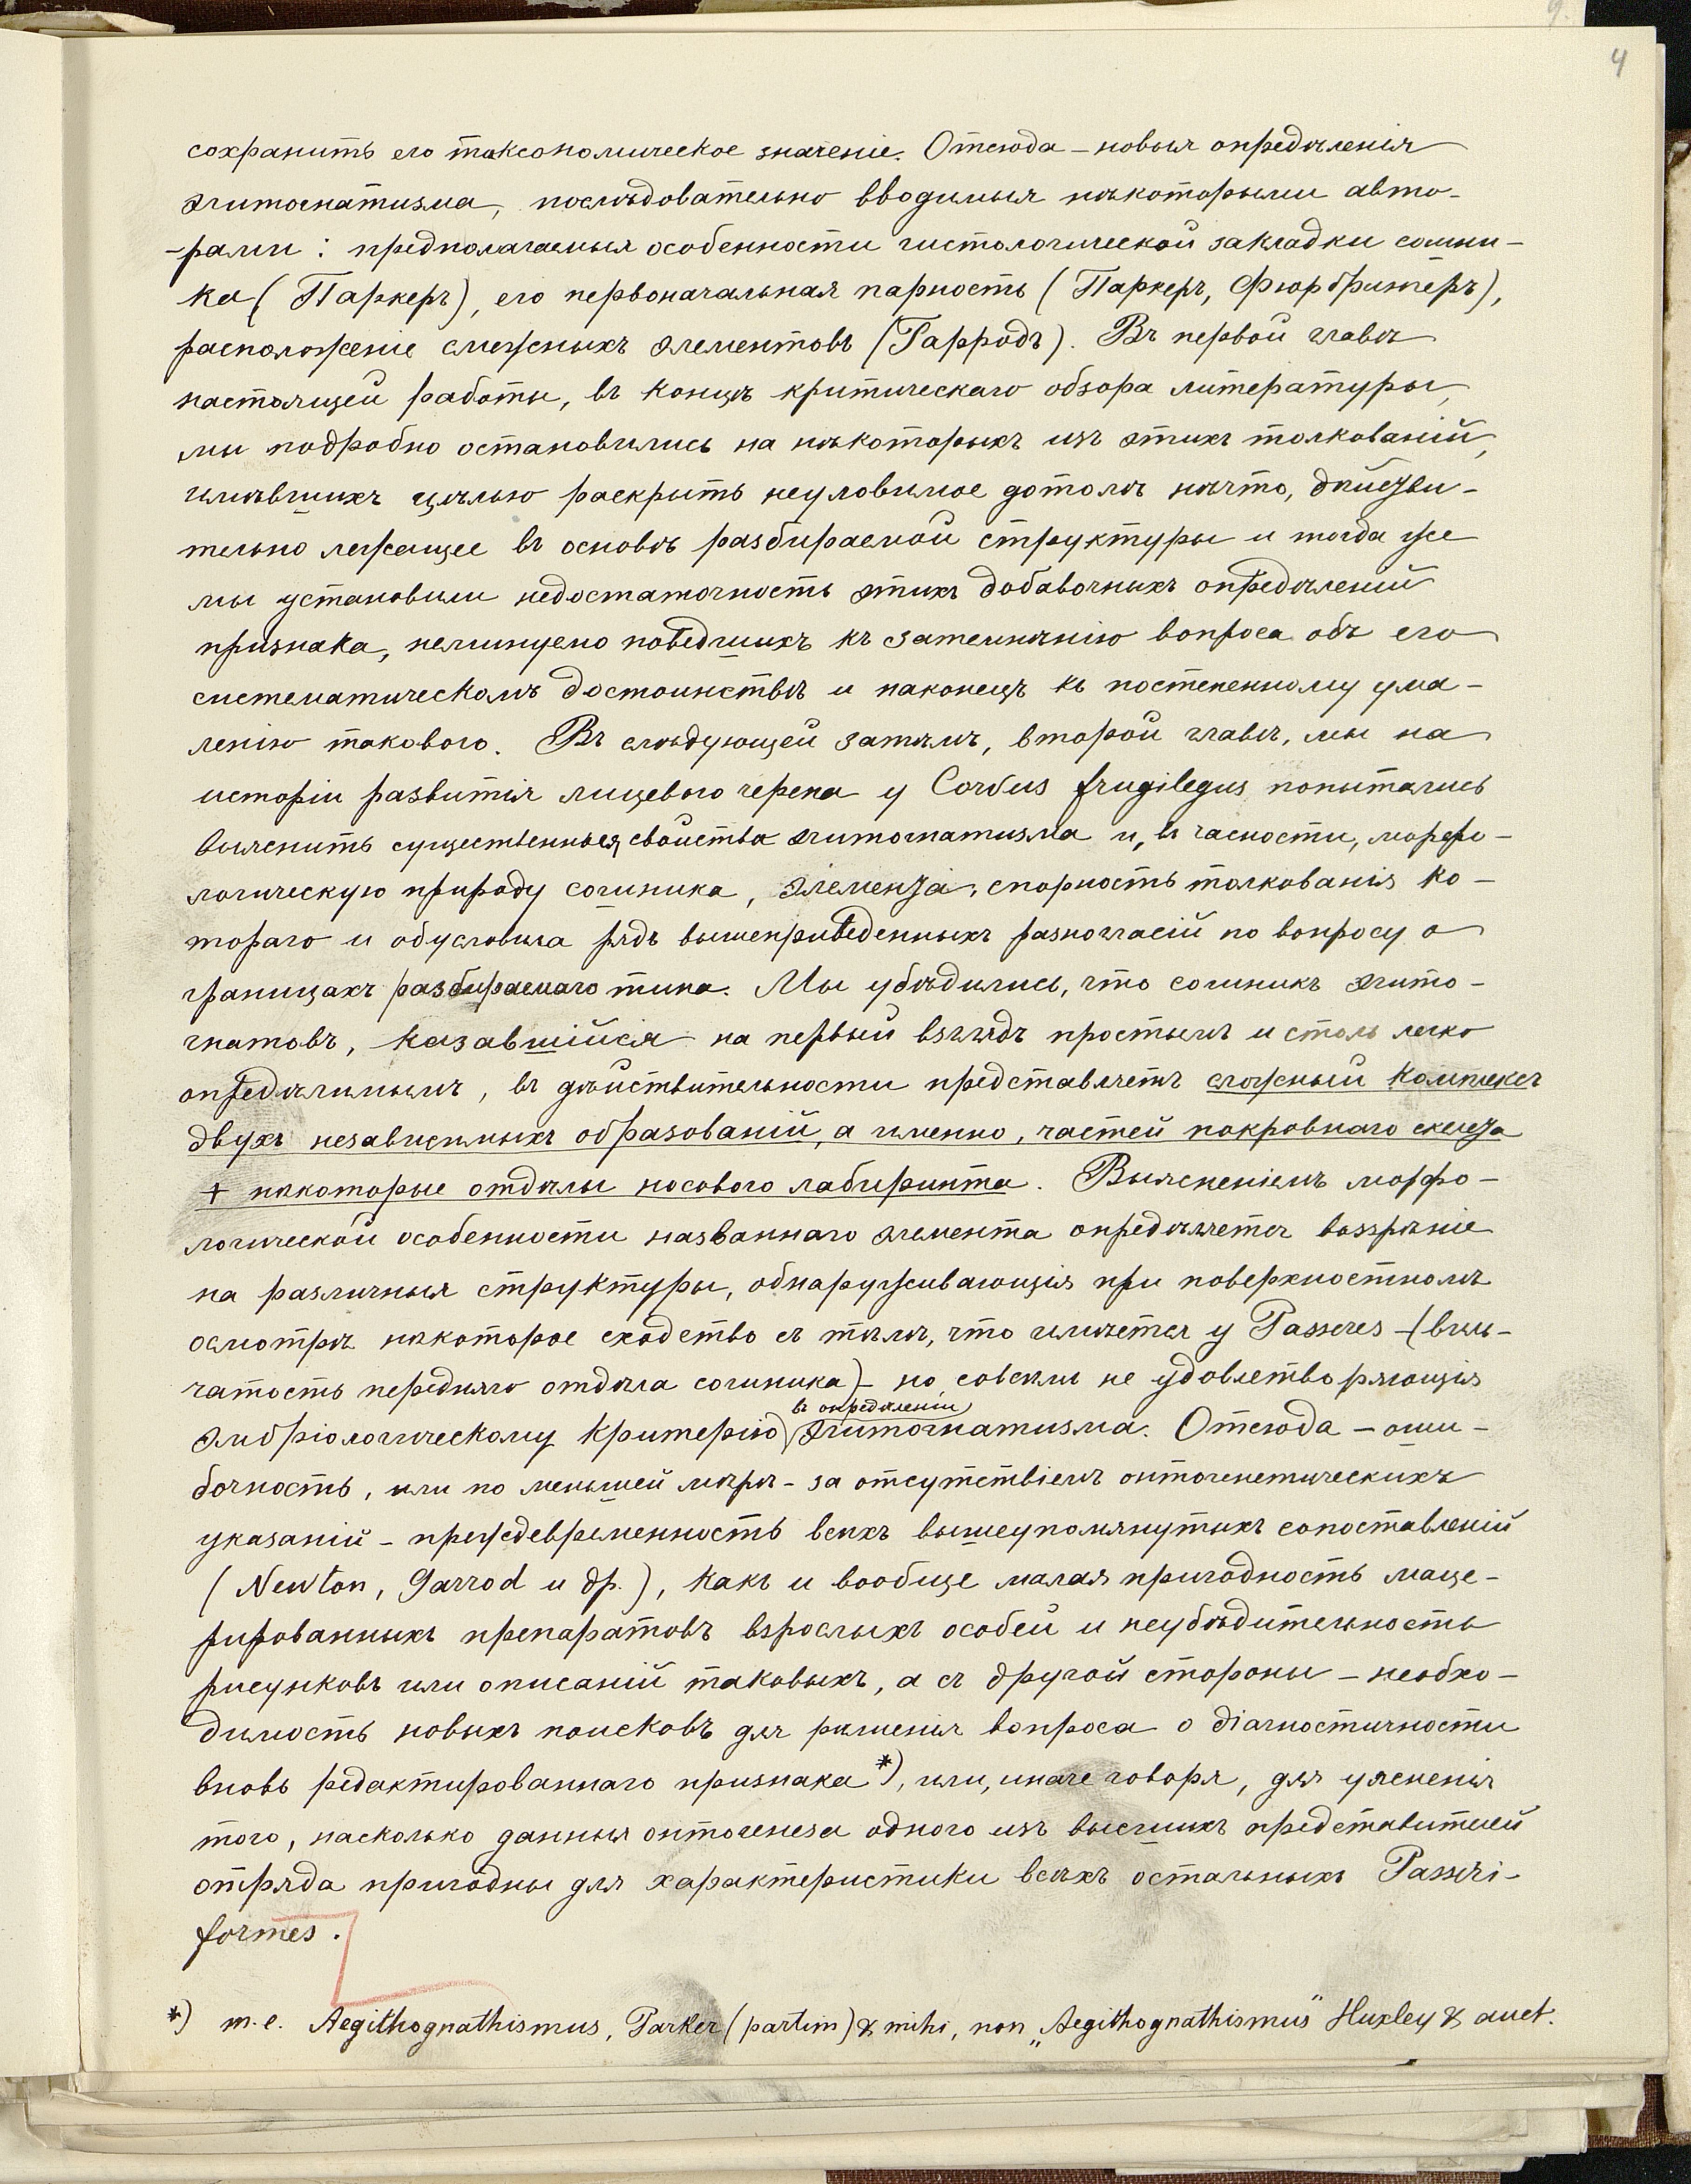 4
сохранить его таксономическое значеніе. Отсюда – новыя опредѣленія
эгитогнатизма, послѣдовательно вводимыя нѣкоторыми авто-
-рами: предполагаемыя особенности гистологической закладки сошни-
ка (Паркеръ), его первоначальная парность (Паркеръ, Фюрбрингеръ),
расположеніе смежныхъ элементовъ (Гарродъ). Въ первой главѣ
настоящей работы, въ концѣ критическаго обзора литературы,
мы подробно остановились на нѣкоторыхъ изъ этихъ толкованій,
имѣвшихъ цѣлью раскрыть неуловимое дотолѣ нѣчто, дѣйстви-
тельно лежащее въ основѣ разбираемой структуры и тогда же
мы установили недостаточность этихъ добавочныхъ опредѣленій
признака, неминуемо поведшихъ къ затемнѣнію вопроса объ его
систематическомъ достоинствѣ и наконецъ къ постепенному ума-
ленію такового. Въ слѣдующей затѣмъ, второй главѣ, мы на
исторіи развитія лицевого черепа у Corvus frugilegus попытались
выяснить существенныя свойства эгитогнатизма и, въ часности, морфо-
логическую природу сошника, элемента, спорность толкованія ко-
тораго и обусловила рядъ вышеприведенныхъ разногласій по вопросу о
границахъ разбираемаго типа. Мы убѣдились, что сошникъ эгито-
гнатовъ, казавшійся на первый взглядъ простымъ и столь легко
опредѣлимымъ, въ дѣйствительности представляетъ сложный комплексъ
двухъ независимыхъ образованій, а именно, частей покровнаго скелета
+ нѣкоторые отдѣлы носового лабиринта. Выясненіемъ морфо-
логической особенности названнаго элемента опредѣляется воззрѣніе
на различныя структуры, обнаруживающія при поверхностномъ
осмотрѣ нѣкоторое сходство съ тѣмъ, что имѣется у Passeres – (выем-
чатость передняго отдѣла сошника) – но совсѣмъ не удовлетворяющія
эмбріологическому критерію въ опредѣленіи эгитогнатизма. Отсюда – оши-
бочность, или по меньшей мѣрѣ – за отсутствіемъ онтогенетическихъ
указаній – преждевременность всѣхъ вышеупомянутыхъ сопоставленій
(Newton, Garrod и др.), какъ и вообще малая пригодность маце-
рированныхъ препаратовъ взрослыхъ особей и неубѣдительность
рисунковъ или описаній таковыхъ, а съ другой стороны – необхо-
димость новыхъ поисковъ для рѣшенія вопроса о діагностичности
вновь редактированнаго признака *), или, иначе говоря, для уясненія
того, насколько данныя онтогенеза одного изъ высшихъ представителей
отряда пригодны для характеристики всѣхъ остальныхъ Passeri-
formes.
*) т.е. Aegithognathismus, Parker (partim) & mihi, non „Aegithognathismus" Huxley & auct.